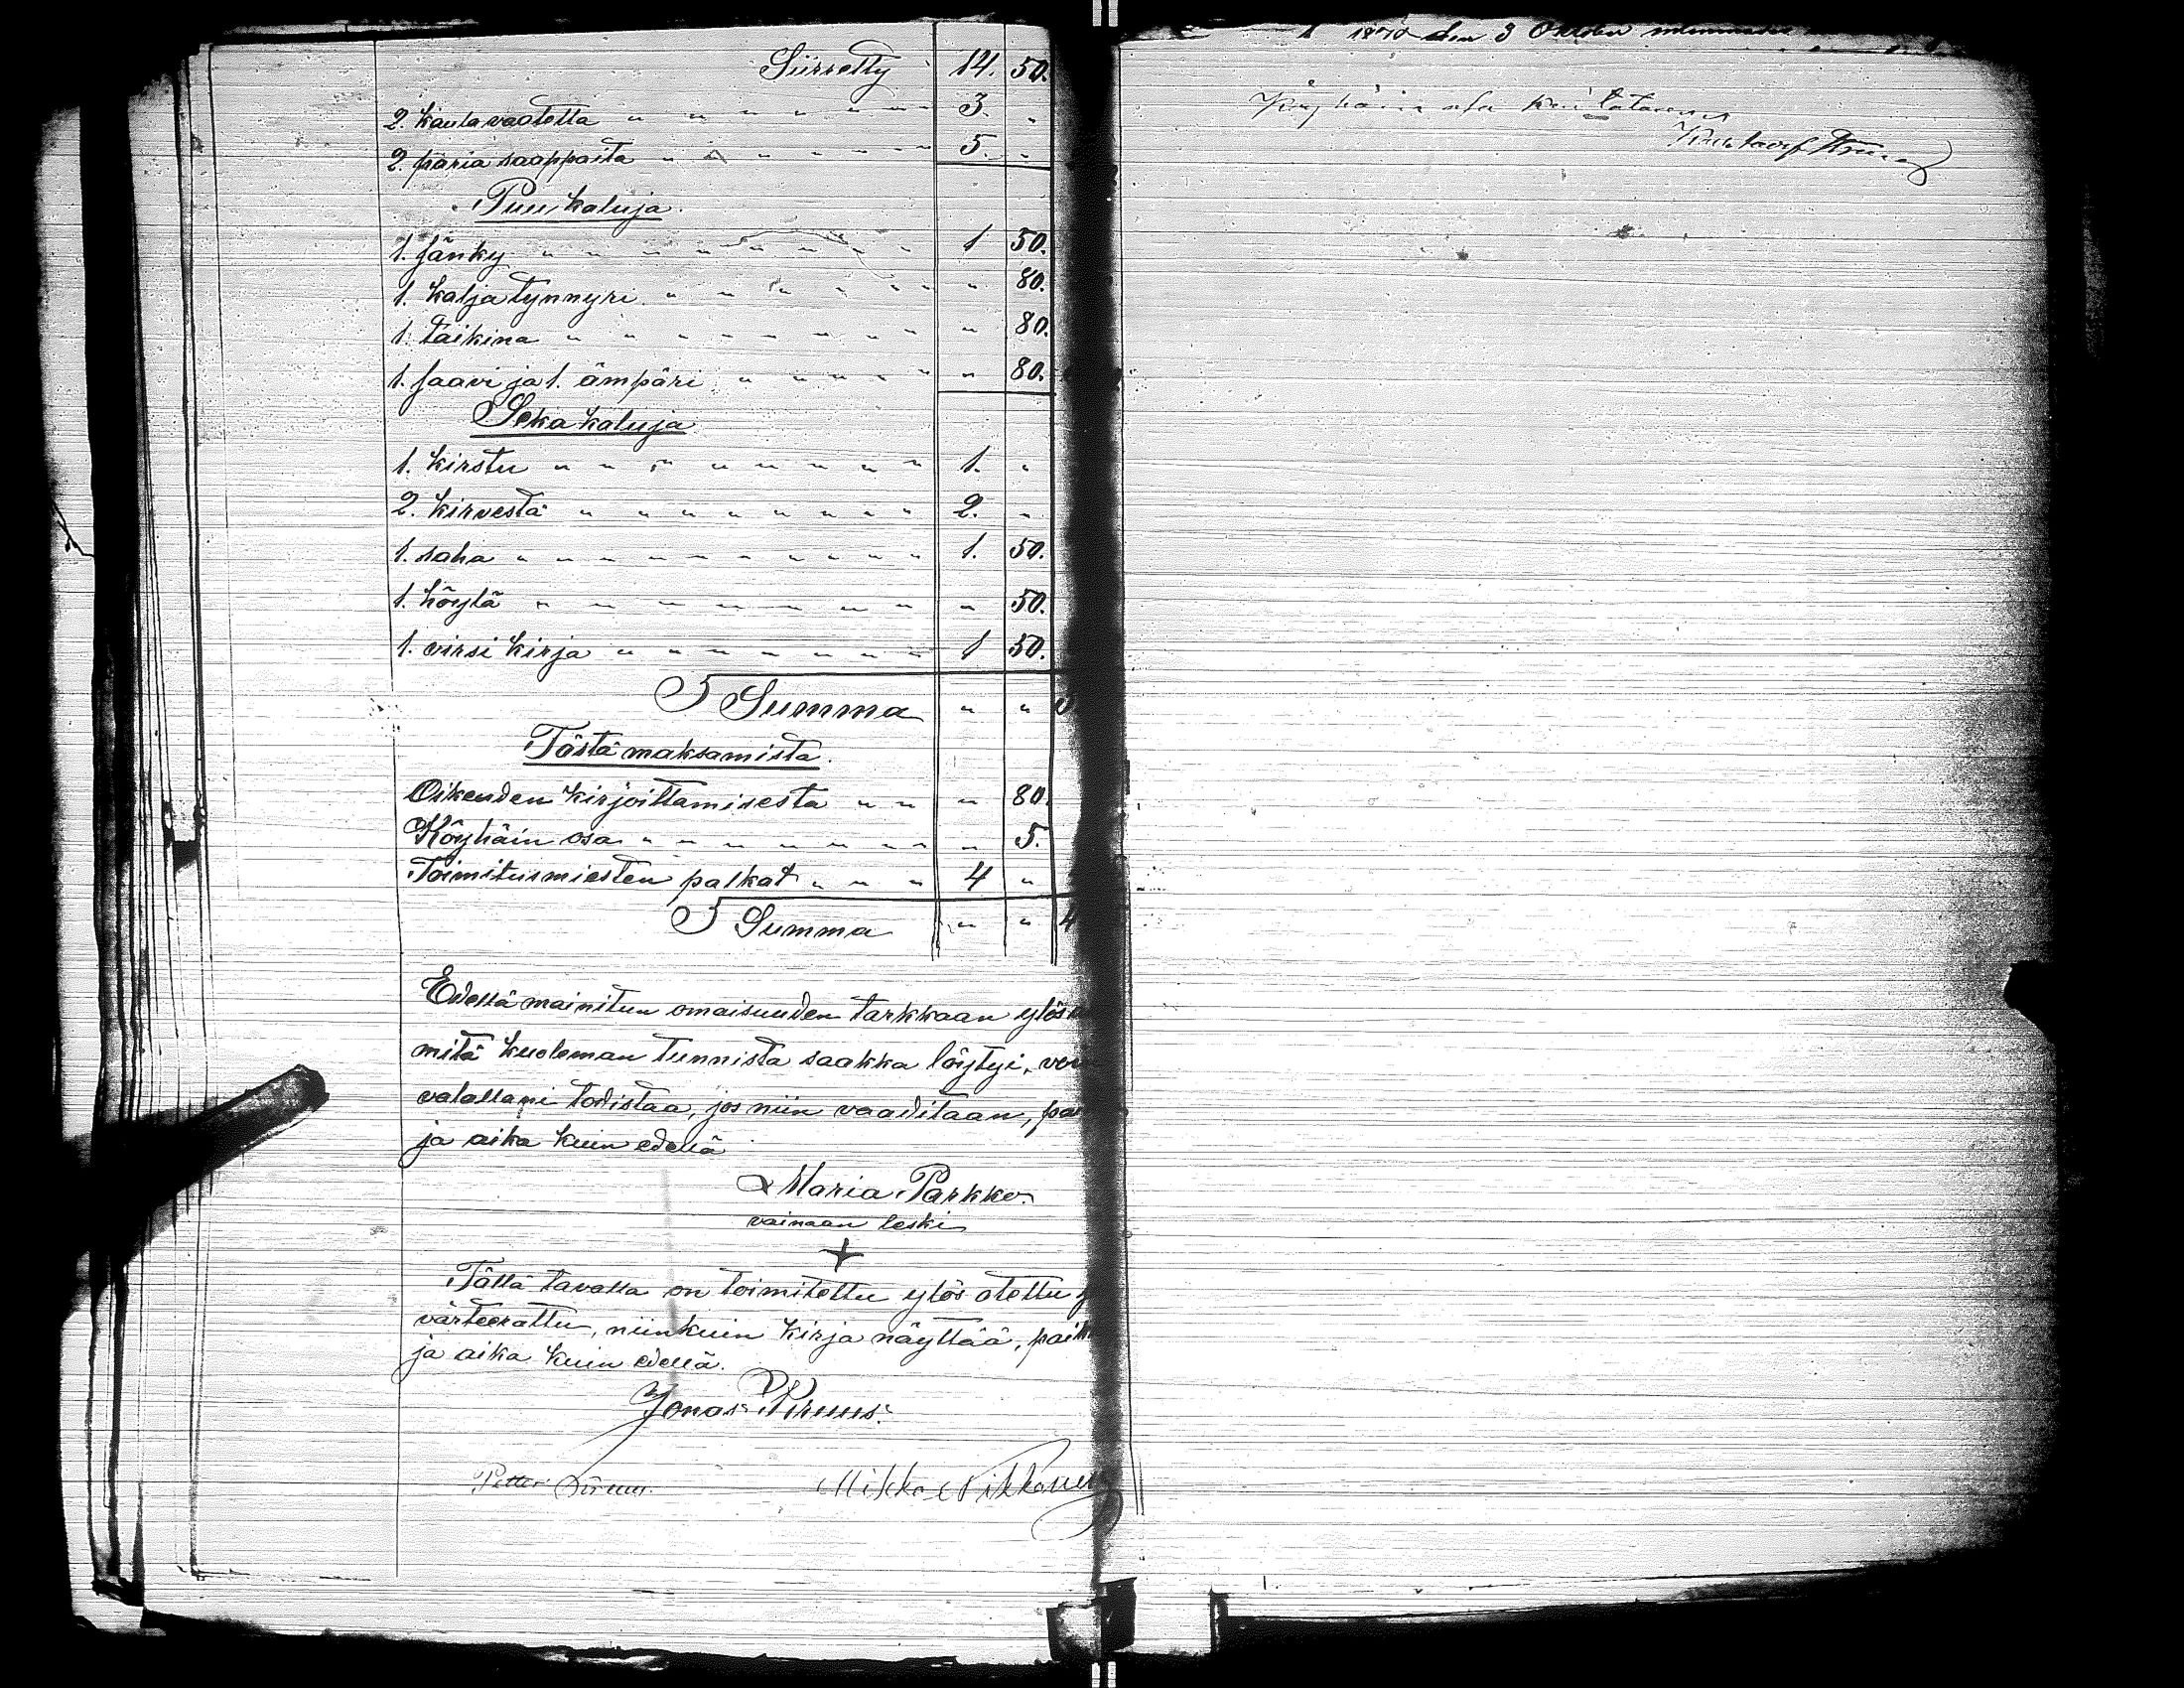 Siirretty 14. 50.
2. kaulavaatetta " " " " " " " 3. "
2. päria saappaita " " " " " " " 5. "
Puu kaluja.
1. sänky " " " " " " " " 1 50.
1. kalja tynnyri " " " " " " " 80.
1. taikina " " " " " " " " 80.
1. saavi ja 1. ämpäri " " " " " " 80.
Seka kaluja
1. kirstu " " " " " " " " 1. "
2. kirvestä " " " " " " " " 2. "
1. saha " " " " " " " " " 1. 50.
1. höylä " " " " " " " " " 50.
1. virsi kirja " " " " " " " 1 50.
Summa " "
Tästä maksamista.
Oikeuden kirjoittamisesta " " " 80.
Köyhäin osa " " " " " " " " 5.
Toimitusmiesten palkat " " " 4 "
Summa " " 4
Edellä mainitun omaisuuden tarkkaan
mitä kuoleman tunnista saakka löytyi,
valallani todistaa, jos niin vaaditaan,
ja aika kuin edellä
Maria Parkko.
vainaan leski
+
Tällä tavalla on toimitettu ylös otettu
värteerattu, niinkuin kirja näyttää,
ja aika kuin edellä.
Jonas
Petter Mikko
den 3